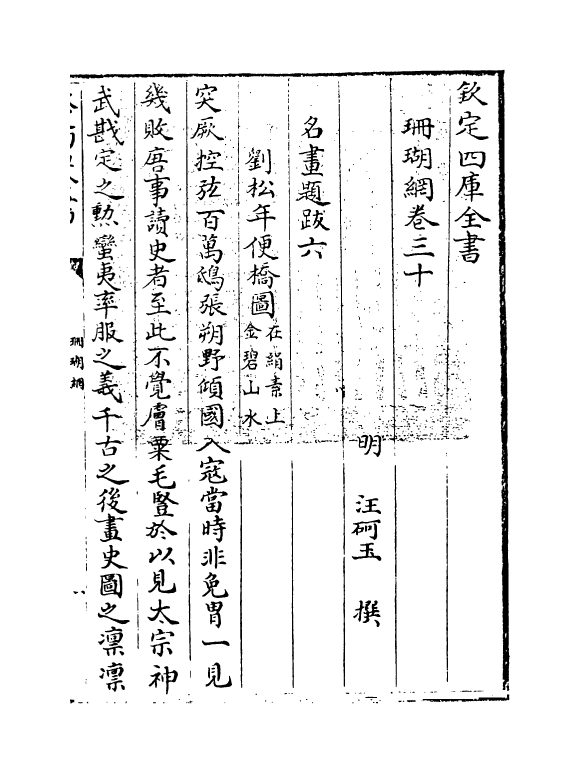 欽定四庫全書
珊瑚網卷三十
明 汪砢玉 撰
名畫題跋六
劉松年便橋圖在絹素上金碧山水
突厥控弦百萬鴟張朔野傾國入寇當時非免胄一見
幾敗唐事讀史者至此不覺膚粟毛豎於以見太宗神
武戡定之勲蠻夷率服之義千古之後畫史圖之凛凛
珊瑚網